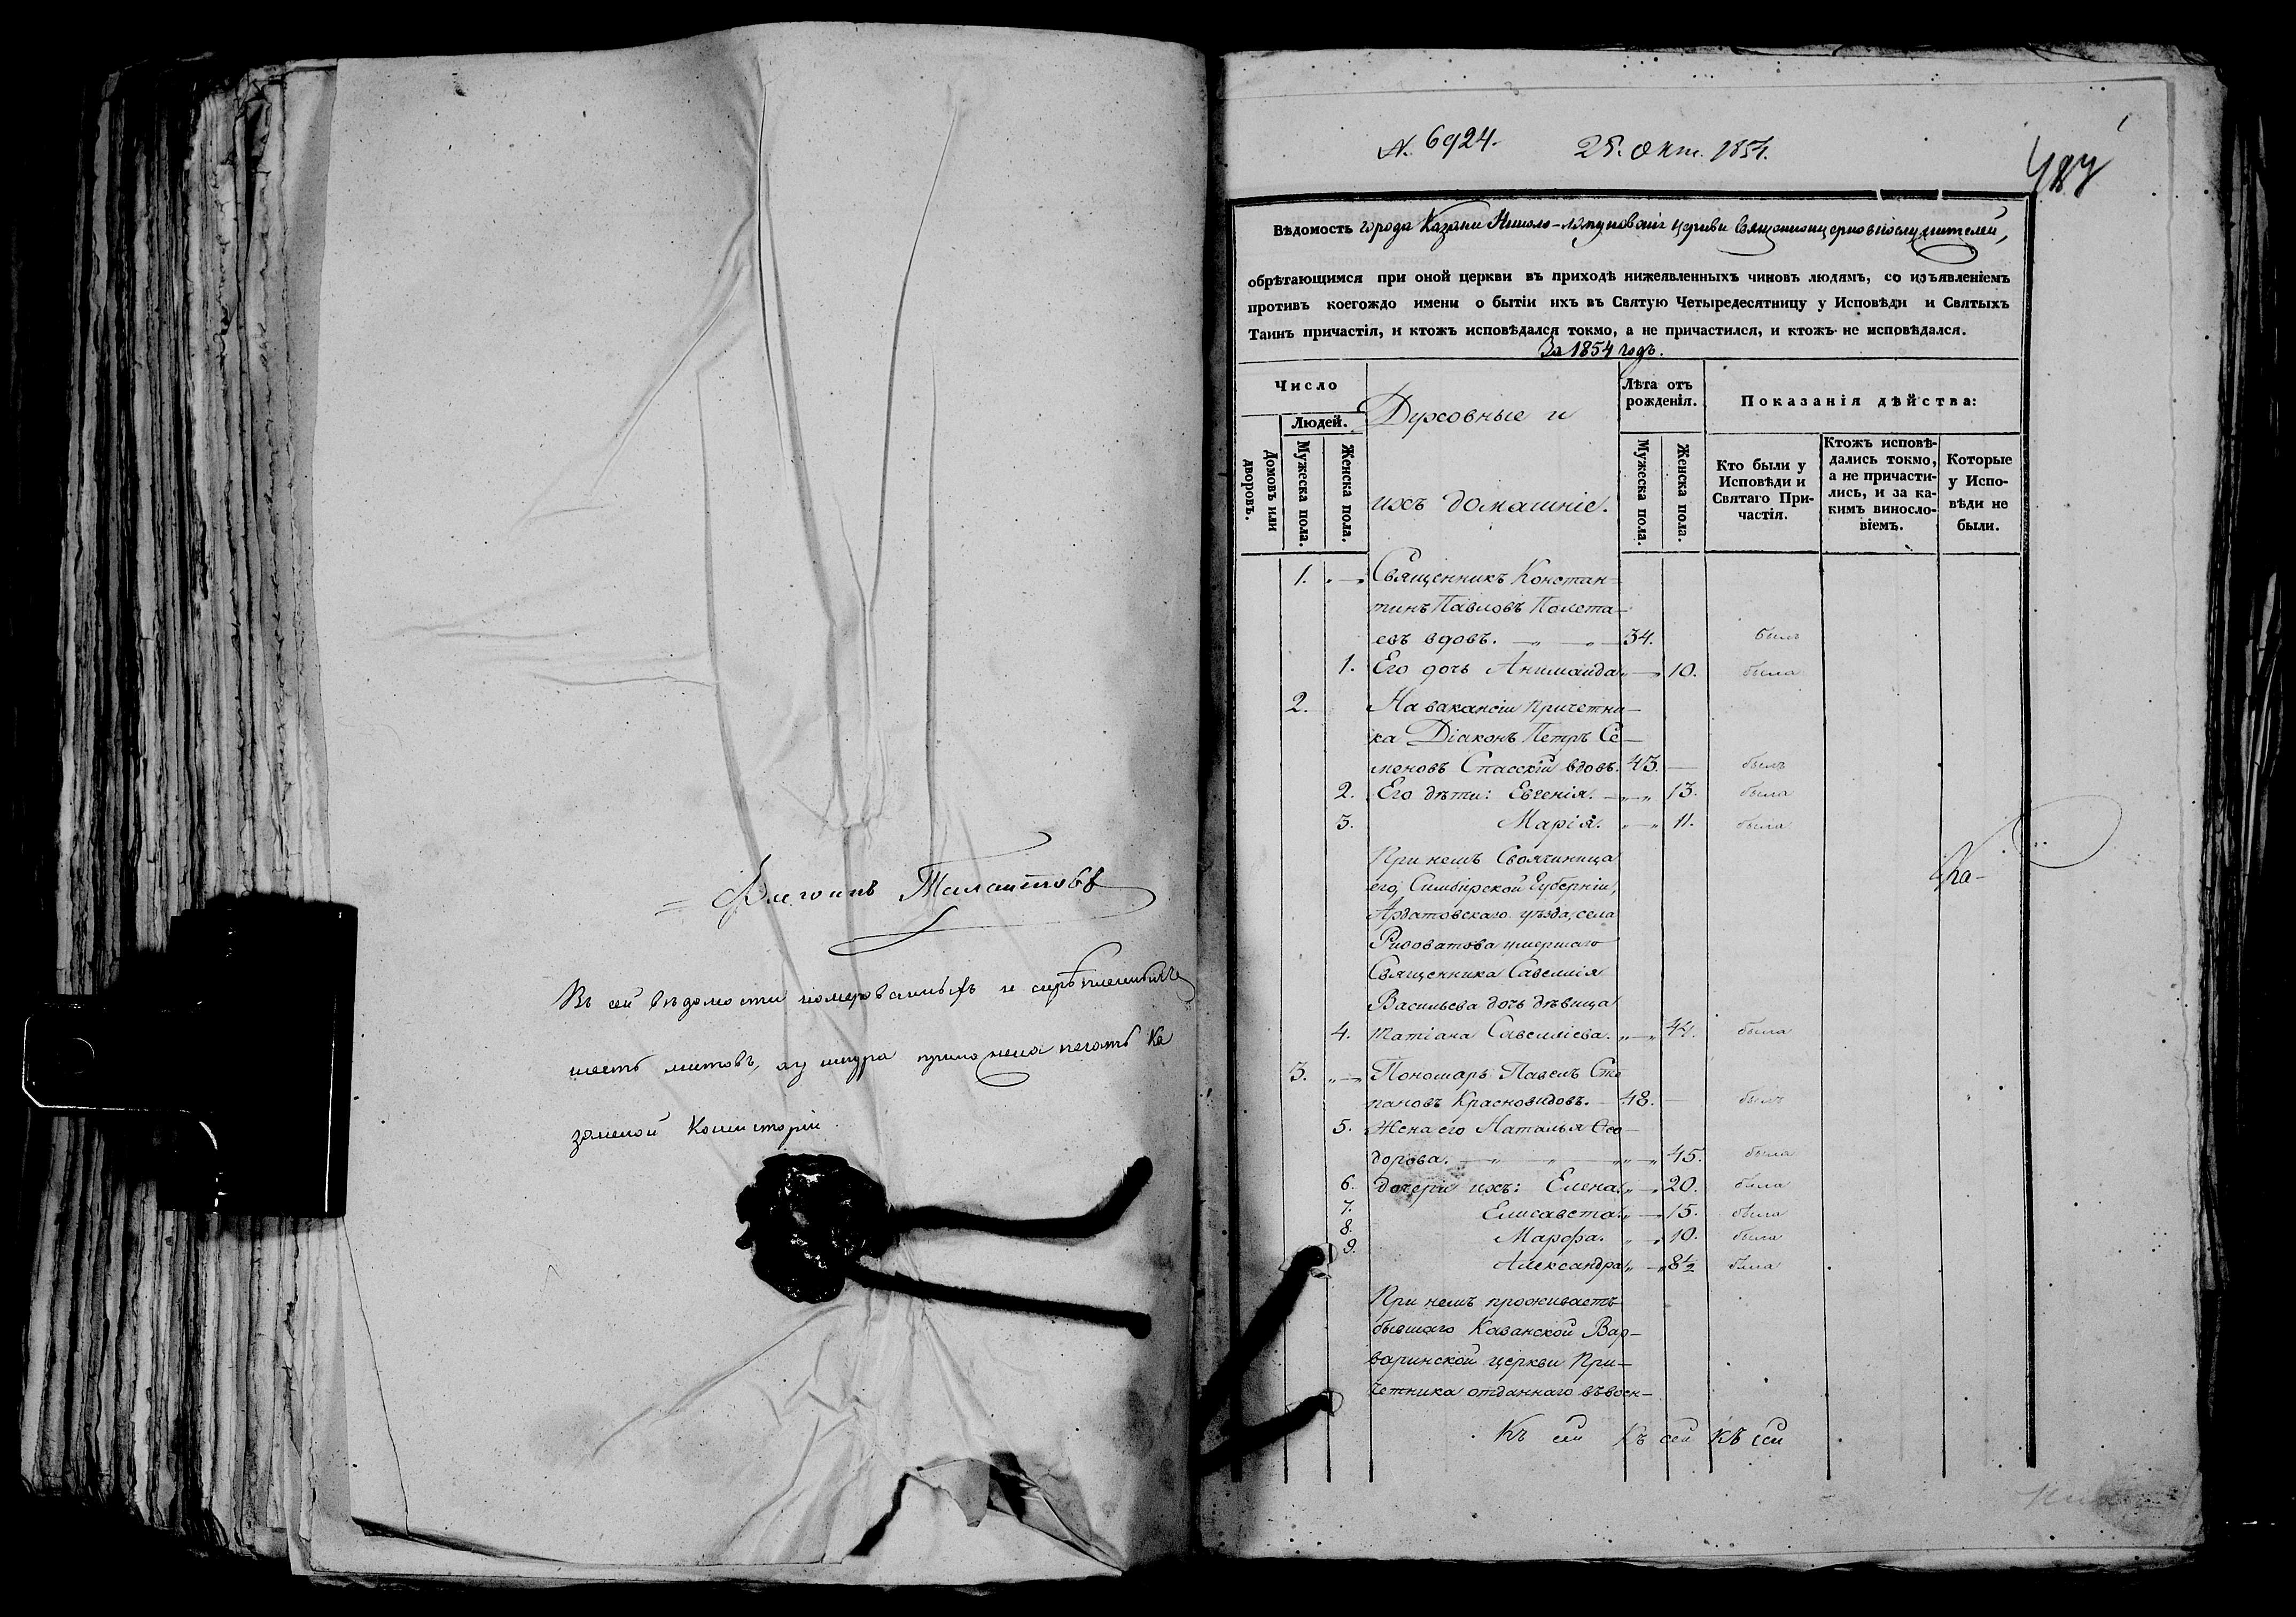 Талантовъ
Въ сей вѣдомости номерованныхъ и скрѣпленныхъ
шесть листовъ, а у шнура приложена печать Ка
занской Консисторіи.
№. 6924. 25. Окт. 1854.
487
Вѣдомость города Казани Николо-Ляпуновскія церкви священноцерковнослужителей,
обрѣтающимся при оной церкви въ приходѣ нижеявленныхъ чиновъ людямъ, со изъявленіемъ
противъ коегождо имени о бытіи ихъ въ Святую Четыредесятницу у Исповѣди и Святыхъ
Таинъ причастія, и ктожъ исповѣдался токмо, а не причастился, и ктожъ не исповѣдался.
За 1854 годъ.
Число
Людей.
Домовъ или дворовъ.
Мужеска пола.
Женска пола.
Духовные и
ихъ домашніе.
Лѣта отъ рожденія.
Мужеска пола.
Женска пола.
Показанія дѣйства:
Кто были у Исповѣди и Святаго Причастія.
Ктожъ исповѣдались токмо, а не причастились, и за какимъ винословіемъ.
Которые у Исповѣди не были.
1. Священникъ Констан-
тинъ Павловъ Полета-
евъ вдовъ. 34. былъ
1. Его дочь 10. была
2. На вакансіи Причетни-
ка Діаконъ Петръ Се-
меновъ Спасскій вдовъ. 43. былъ
2. Его дѣти: Евгенія. 13. была
3. Марія. 11. была
При немъ Своячиница
его, Симбирской Губерніи,
Ардатовскаго уѣзда, села
умершаго
Священника Савелія
Васильева дочь дѣвица
4. Татіана Савеліева. была
3. Пономарь Павелъ Сте
пановъ Красновидовъ. 48. былъ
5. Жена его Наталья Ѳео-
дорова. 45. была
6. дочери ихъ: Елена. 20. была
7. Елисавета. 15. была
8. Марфа. 10. была
9. Александра 8½ была
При немъ проживаетъ
бывшаго Казанской Вар-
варинской церкви При-
четника отданнаго въ воен-
Ка-
Къ сей Къ сей Къ сей